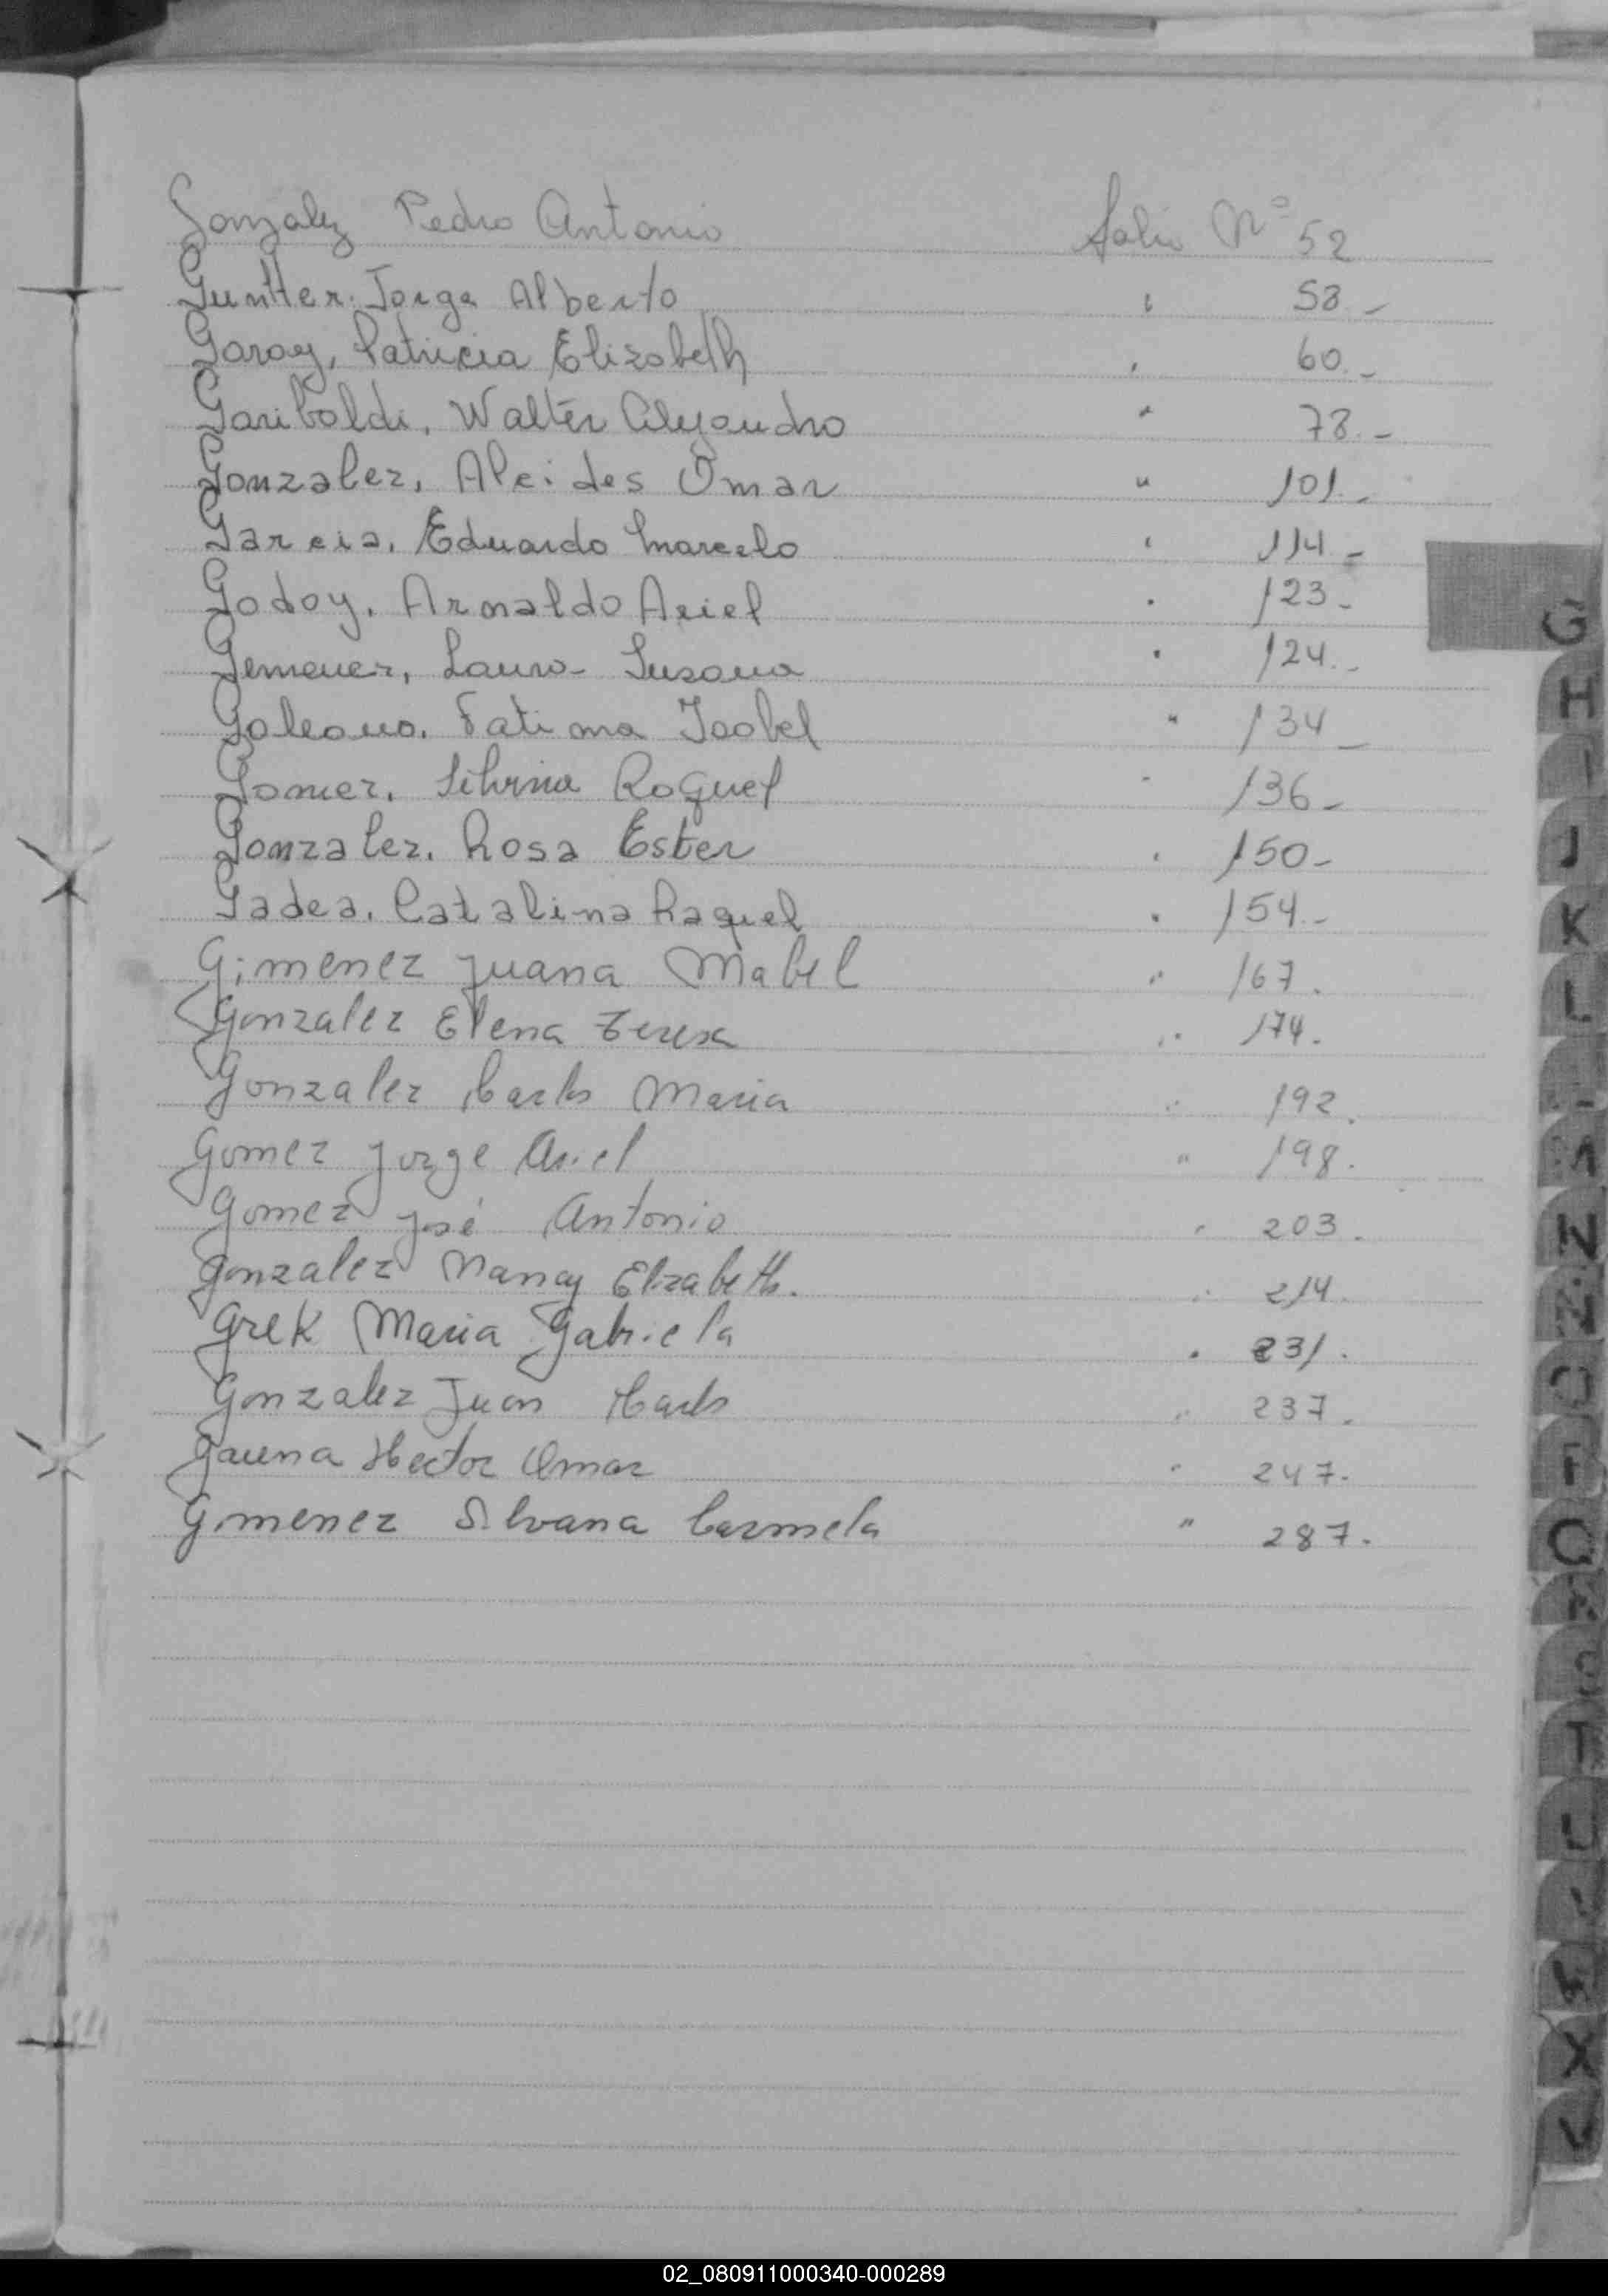 Gonzalez Pedro Antonio Folio Nº 52
Guntter. Jorge Alberto " 58.-
Garay, Patricia Elizabeth " 60.-
Gariboldi, Walter Alejandro " 78.-
Gonzalez, Alcides Omar " 101.-
Garcia, Eduardo Marcelo " 114.-
Godoy, Arnaldo Ariel " 123.-
Laura Susana " 124.-
Galeano. Fatima Isabel " 134.-
Gomez, Silvina Raquel " 136.-
Gonzalez. Rosa Ester " 150.-
Gadea. Catalina Raquel " 154.-
Gimenez Juana Mabel " 167.
Gonzalez Elena Teresa " 174.
Gonzalez Carlos Maria " 192.
Gomez Jorge Ariel " 198.
Gomez José Antonio " 203.
Gonzalez Nancy Elizabeth. " 214.
Grek Maria Gabriela " 231.
Gonzalez Juan Carlos " 237.
Gauna Hector Omar " 247.
Gimenez Silvana Carmela " 287.
G
H
I
J
K
L
N
Ñ
O
P
Q
T
U
X
02_080911000340-000289